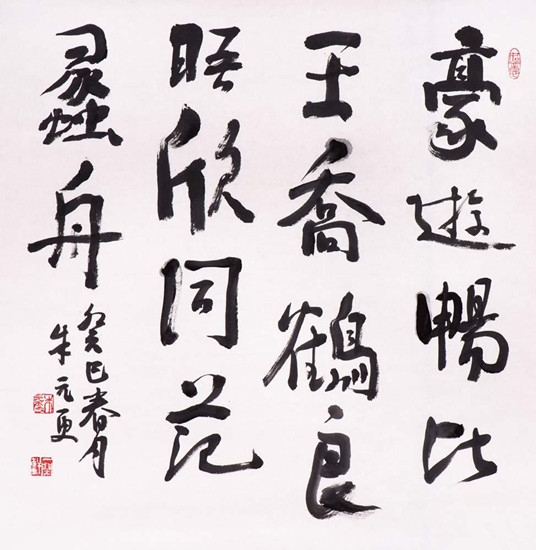 豪遊暢比
王喬鶴良
晤欣同范
蠡舟
癸巳春月
朱元更